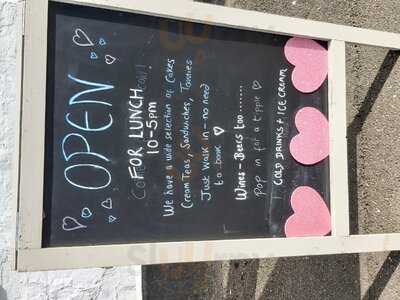 OPEN
FOR LUNCH
10-5pm
We have a wide selection of Cakes
Cream Teas, Sandwiches, Toasties
Just walk in - no need
to book
Wines - Beers too .......
Pop in for a tipple
COLD DRINKS + ICE CREAM